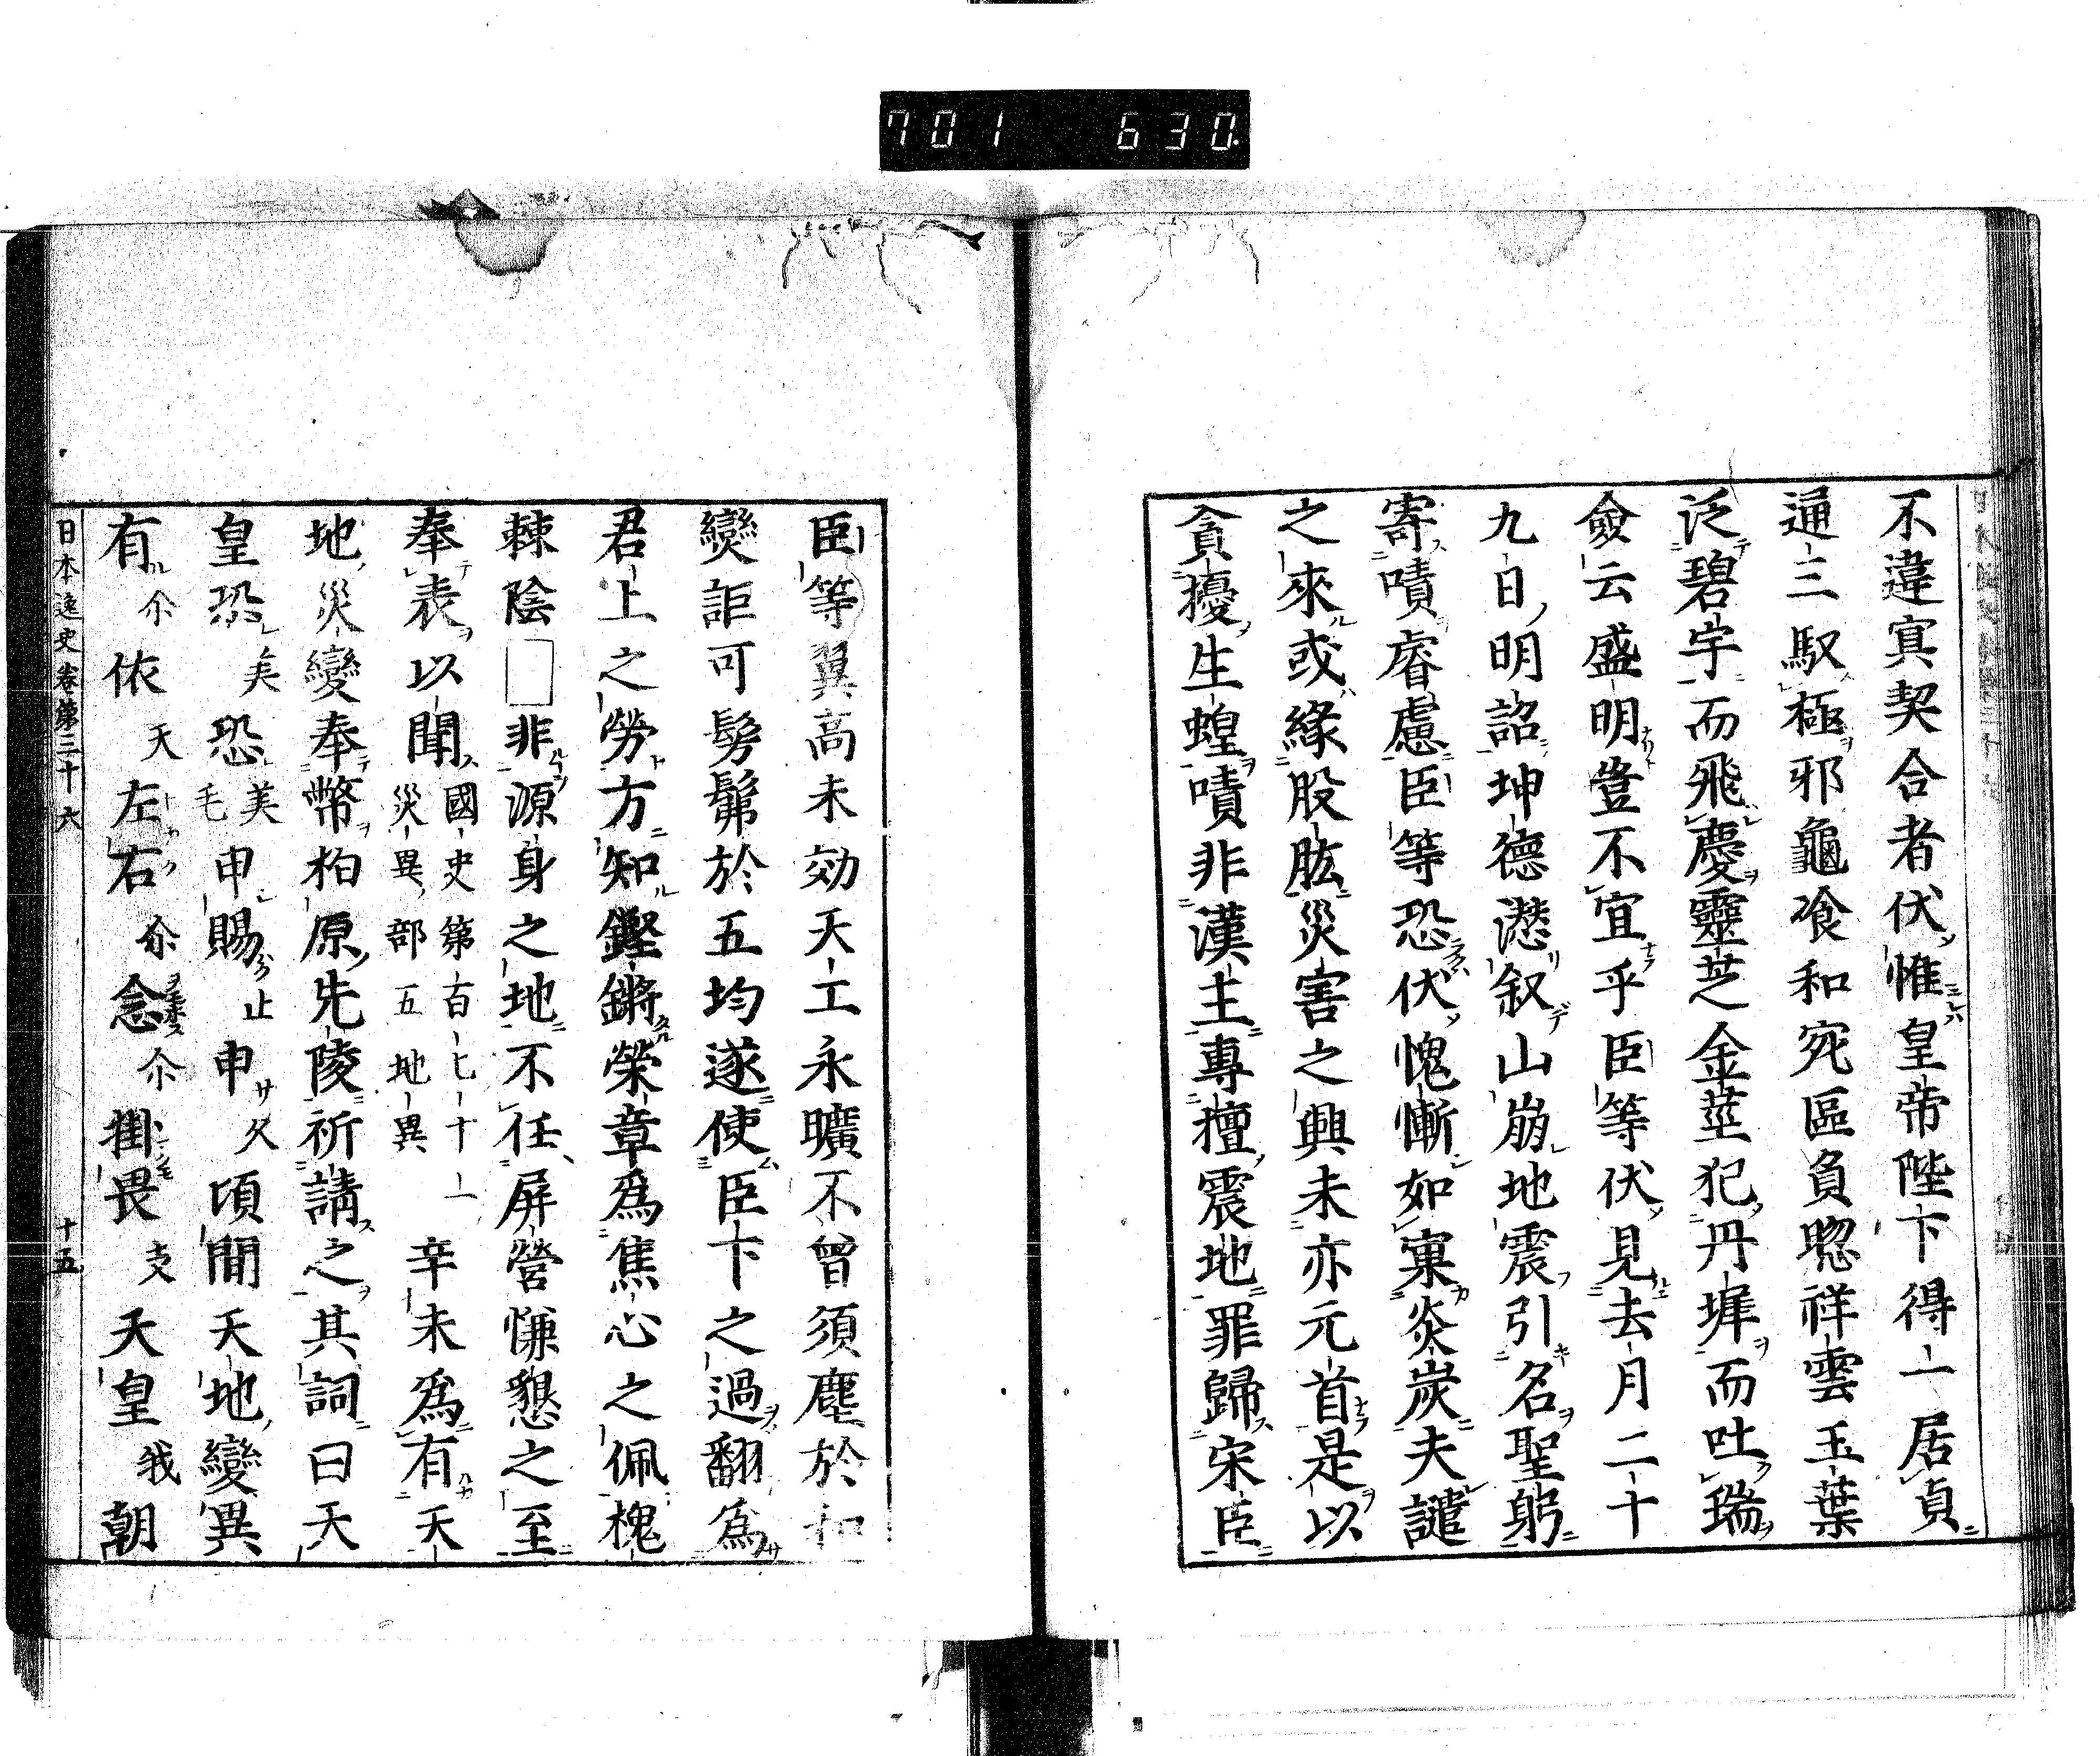 701 630
不違寅契合者伏惟皇帝陛下得一居貞
通三馭極邪龜飡和宛區負 祥雲玉葉
泛碧宇而飛慶靈芝金莖犯丹墀而吐瑞
僉云盛明豈不宜乎臣等伏見去月二十
九日明詔坤德愆叙山崩地震引名聖躬
寄嘖睿慮臣等恐伏愧慚如 炎炭夫譴
之來或緣股肱災害之興未亦元首是以
貪擾生蝗嘖非漢主專擅震地罪歸宋臣
臣等翼高未効天工永曠不曾須塵於和
變詎可髣髴於五均遂使臣下之過翻為
君上之勞方知鏗鏘榮章為焦心之佩槐
棘陰□非源身之地不任屏營慊懇之至
奉表以聞國史第百七十一災異部五地異 辛未為有天
地災變奉幣柏原先陵祈請之其詞曰天
皇恐矣恐美毛申賜止申久頃間天地變異
有尒依天左右尒念尒掛畏支天皇我朝
日本逸史卷第三十六 十五